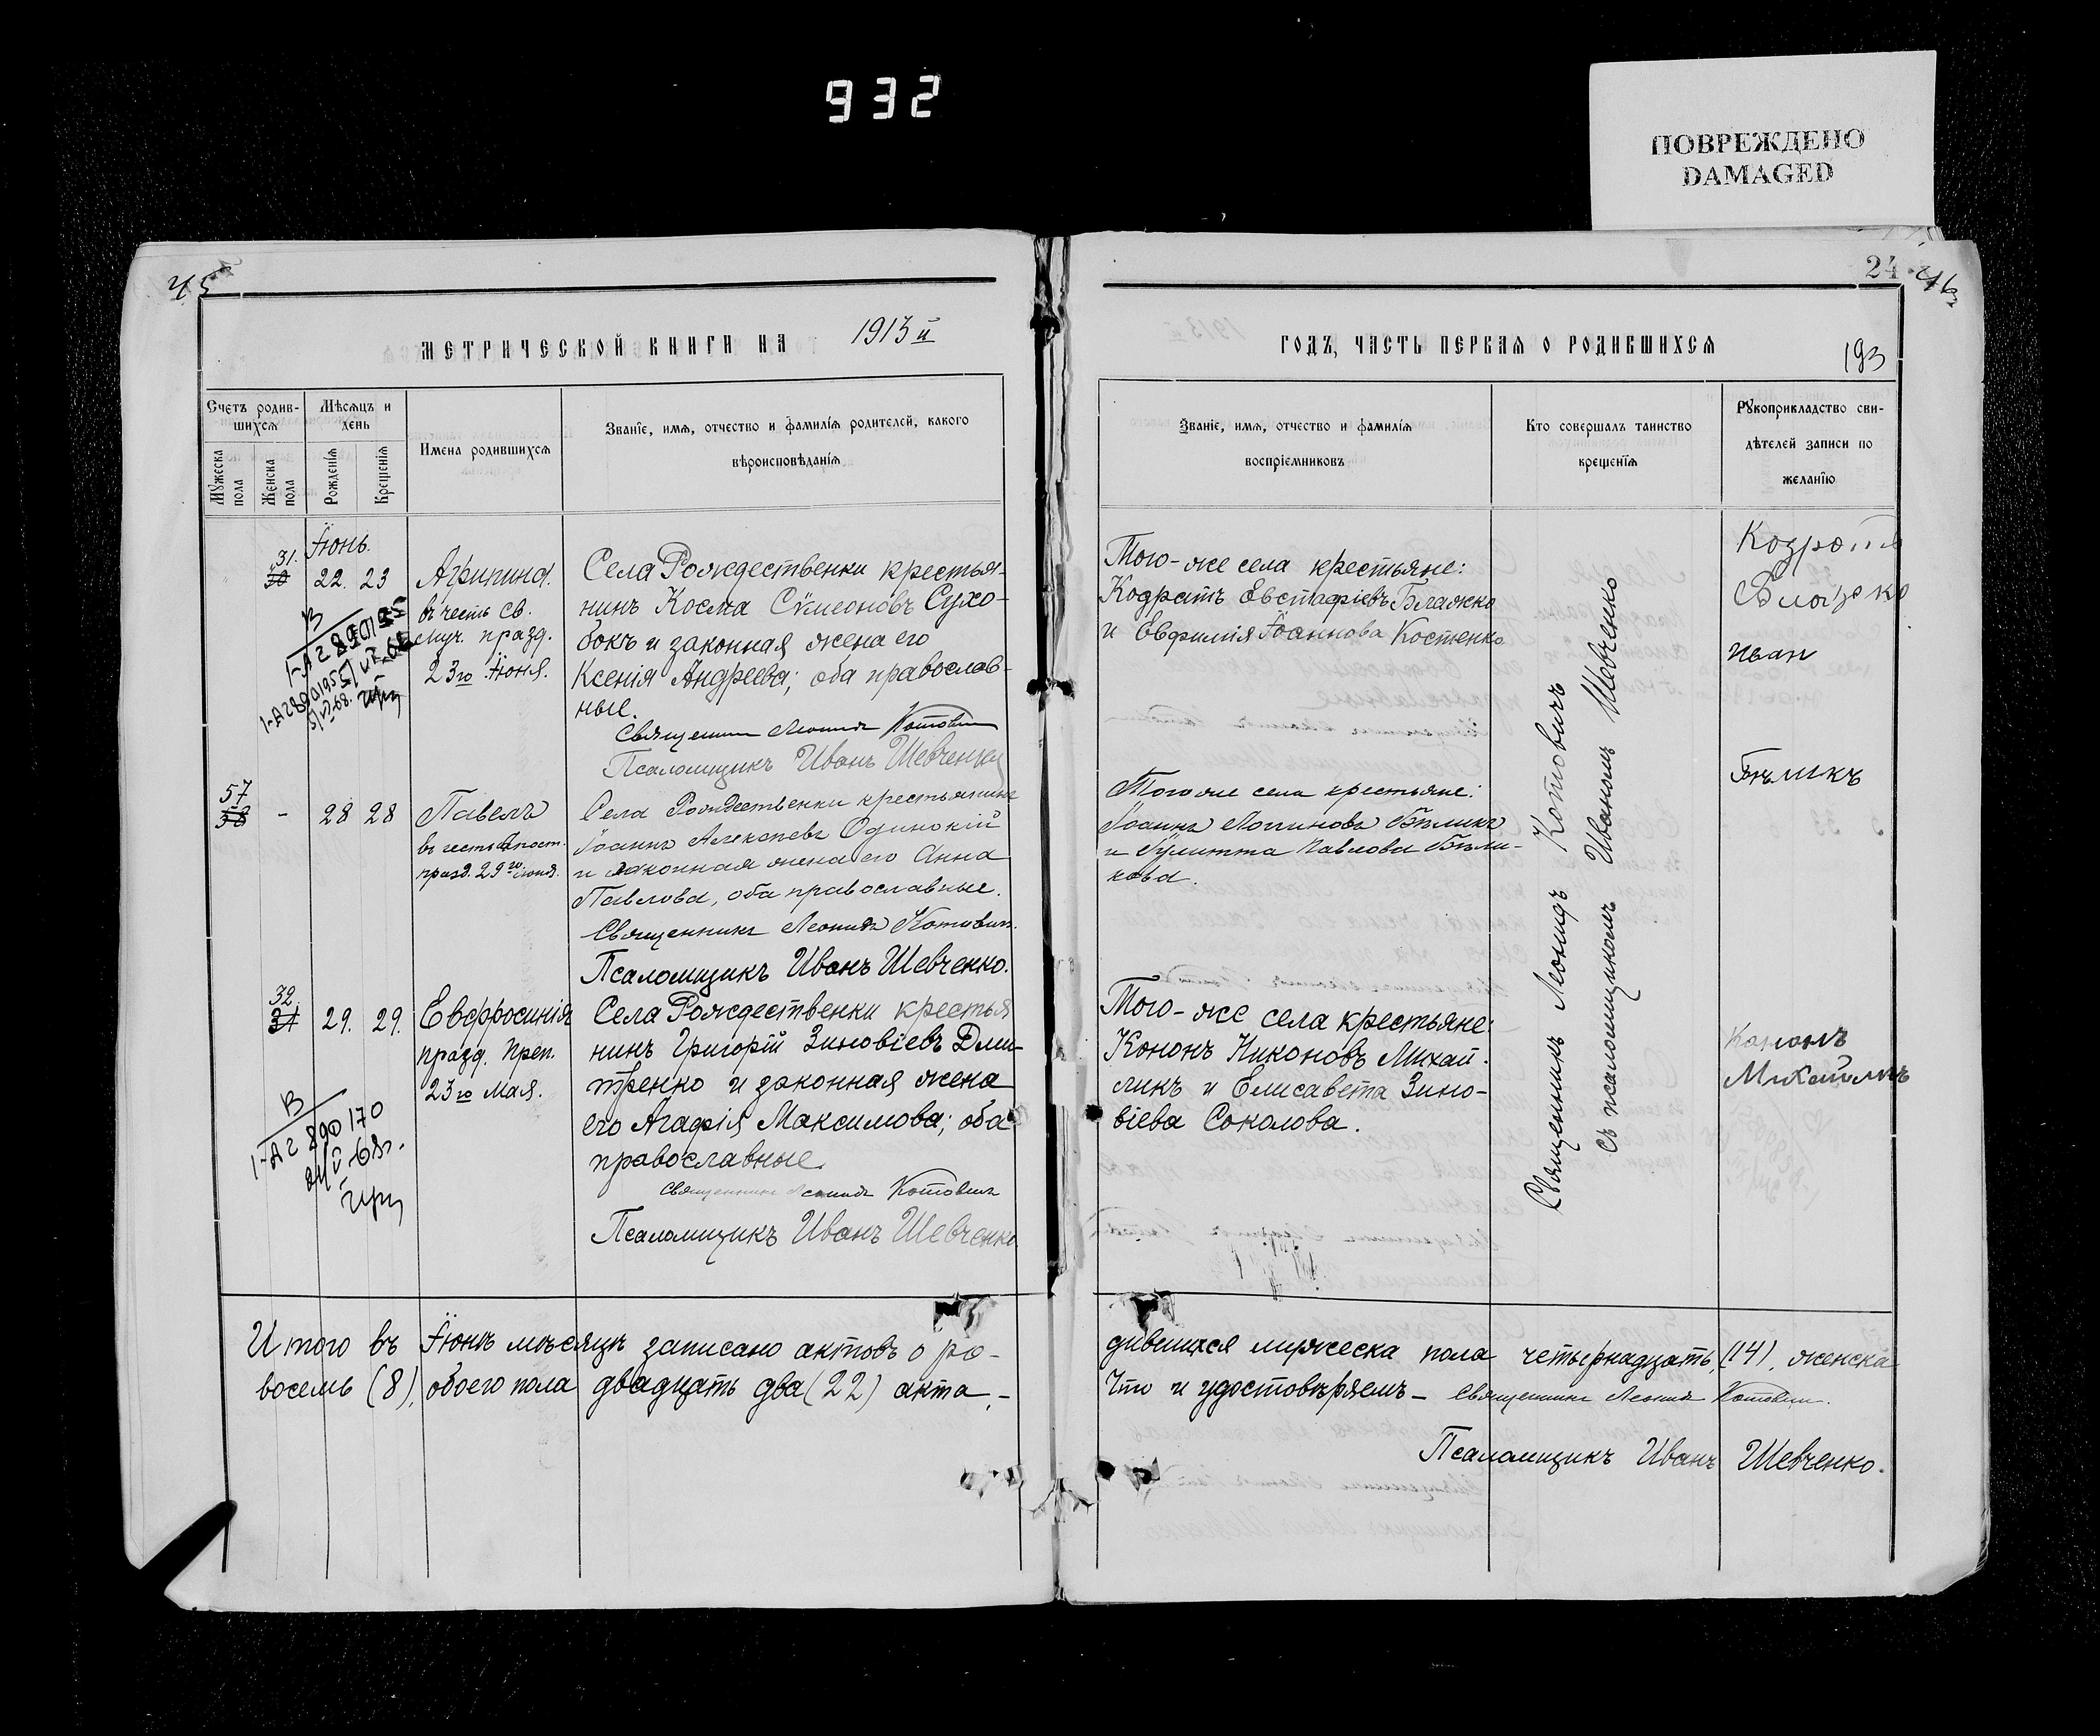 932
ПОВРЕЖДЕНО
DAMAGED
45
24
46
МЕТРИЧЕСКОЙ КНИГИ НА 1913й
ГОДЪ, ЧАСТЬ ПЕРВАЯ О РОДИВШИХСЯ
193
Счетъ родив-
шихся
Мужеска
пола
Женска
пола
Мѣсяцъ и
день
Рожденія
Крещенія
Имена родившихся
Званіе, имя, отчество и фамилія родителей, какого
вѣроисповѣданія
Званіе, имя, отчество и фамилія
воспріемниковъ
Кто совершалъ таинство
крещенія
Рукоприкладство сви-
дѣтелей записи по
желанію
Іюнь.
31.
30
22. 23
Агрипина.
въ честь св.
муч. празд.
23го Іюня.
Села Рождественки крестья-
нинъ Косма Сѷмеоновъ Сухо-
бокъ и законная жена его
Ксенія Андреева; оба православ-
ные.
Священникъ Леонидъ Котовичъ
Псаломщикъ Иванъ Шевченко
Того-же села крестьяне:
Кодратъ Евстафіевъ Блажко
и Евфимія Іоаннова Костенко
Кодратъ
Блажко
Иван
Бѣликъ
57
58
- 28 28
Павелъ
въ честь Апост.
празд. 29го іюня.
Села Рождественки крестьянинъ
Іоаннъ Алексѣевъ Одинокій
и законная жена его Анна
Павлова, оба православные.
Священникъ Леонидъ Котовичъ.
Псаломщикъ Иванъ Шевченко.
Того же села крестьяне:
Іоаннъ Логиновъ Бѣликъ
и Іулитта Павлова Бѣли-
кова.
32
31
29. 29.
Евфросинія
празд. Преп.
23го Мая.
В
1-АГ 890170
Села Рождественки крестья
нинъ Григорій Зиновіевъ Дми-
тренко и законная жена
его Агафія Максимова; оба
православные.
Священникъ Леонидъ Котовичъ
Псаломщикъ Иванъ Шевченко
Того-же села крестьяне:
Кононъ Никоновъ Михай-
ликъ и Елисавета Зино-
віева Соколова.
Кононъ
Михайликъ
Священникъ Леонидъ Котовичъ
съ псаломщикомъ Иваномъ Шевченко
Итого въ Іюнѣ мѣсяцѣ записано актовъ о ро-
дившихся мужеска пола четырнадцать (14), женска
восемь (8), обоего пола двадцать два (22) акта.-
Что и удостовѣряемъ- Священникъ Леонидъ Котовичъ.
Псаломщикъ Иванъ Шевченко.